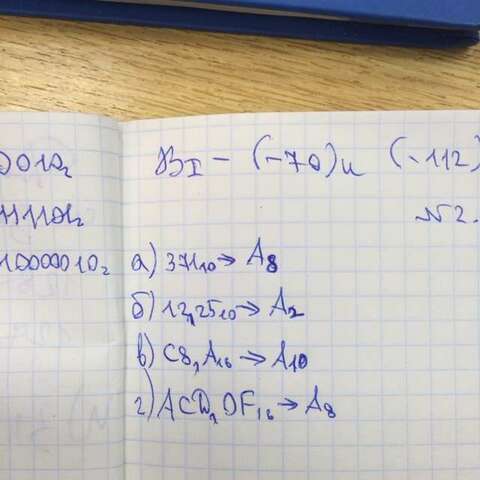 0010₂
10000010₂
(-70) и (-112)
№2.
а) 371₁₀→ A₈
б) 12,25₁₀→ A₂
в) C8,A₁₆→ A₁₀
г) ACD,DF₁₆→ A₈